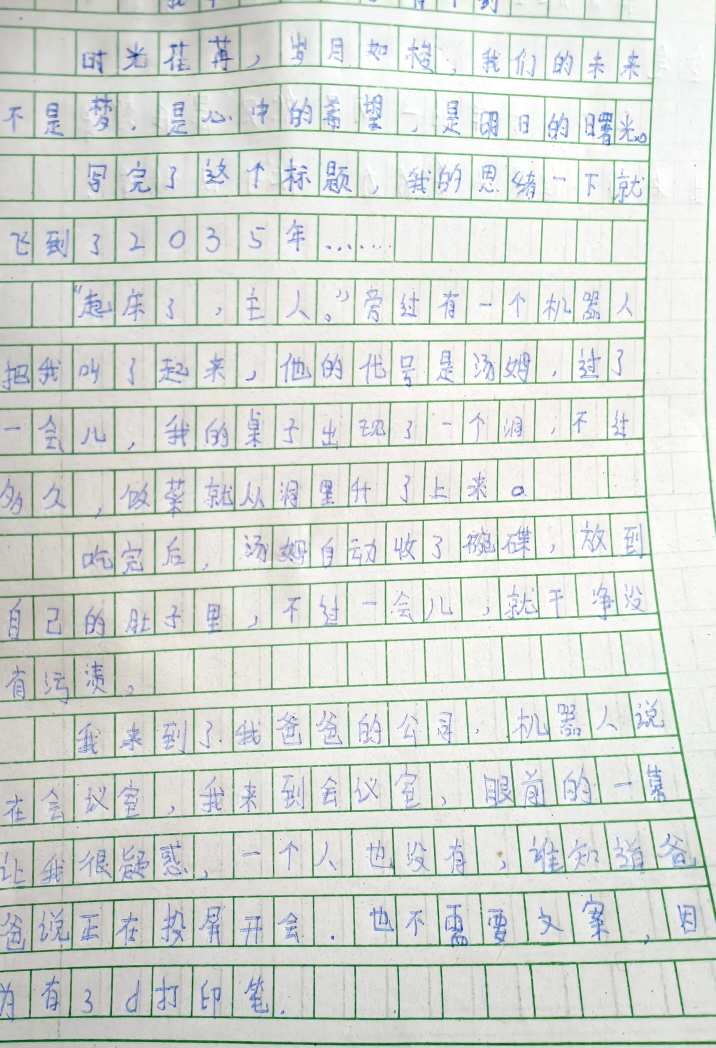 时光荏苒，岁月如梭，我们的未来
不是梦，是心中的希望，是明日的曙光。
写完了这个标题，我的思绪一下就
飞到了2035年……
“起床了，主人。”旁边有一个机器人
把我叫了起来，他的代号是汤姆，过了
一会儿，我的桌子出现了一个洞，不过
多久，饭菜就从洞里升了上来。
吃完后，汤姆自动收了碗碟，放到
自己的肚子里，不过一会儿，就干净没
有污渍。
我来到了我爸爸的公司，机器人说
在会议室，我来到会议室，眼前的一幕
让我很疑惑，一个人也没有，谁知道爸
爸说正在投屏开会．也不需要文案，因
为有3d打印笔．